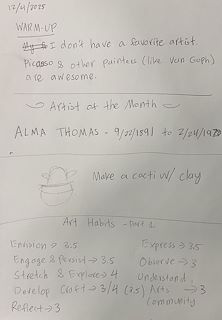 12/4/2025
WARM-UP
I don't have a favorite artist.
Picasso & other painters (like Van Goph)
are awesome.
Artist of the Month
ALMA THOMAS - 9/22/1891 to 2/24/1978
Make a cacti w/ clay
Art Habits - Part 1
Envision → 3.5
Engage & Persist → 3.5
Stretch & Explore → 4
Develop Craft → 3/4 (3.5)
Reflect → 3
Express → 3.5
Observe → 3
Understand
Arts → 3
Community